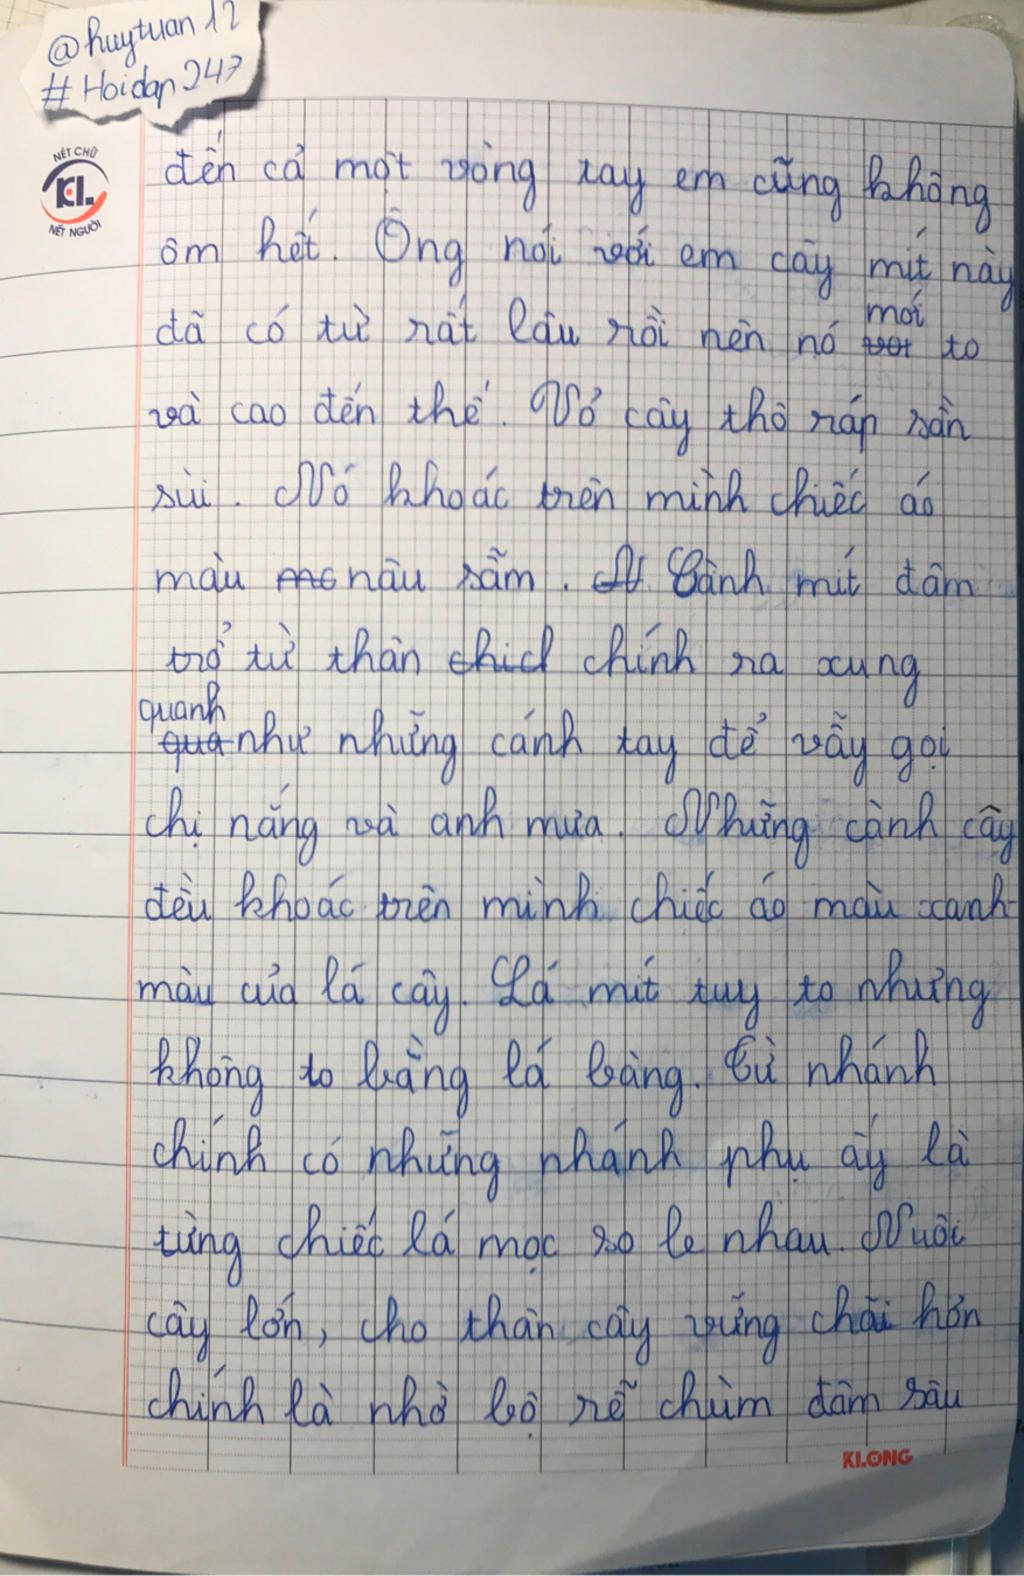 @huytuan12
#Hoidap247
NÉT CHỮ
KL.
NẾT NGƯỜI
đến cả một vòng tay em cũng không
ôm hết. Ông nói với em cây mít này
mới
đã có từ rất lâu rồi nên nó to
và cao đến thế. Vỏ cây thô ráp sần
sùi. Nó khoác trên mình chiếc áo
màu nâu sẫm. Cành mít đâm
trổ từ thân chính ra xung
quanh
như những cánh tay để vẫy gọi
chị nắng và anh mưa. Những cành cây
đều khoác trên mình chiếc áo màu xanh
màu của lá cây. Lá mít tuy to nhưng
không to bằng lá bàng. Từ nhánh
chính có những nhánh phụ ấy là
từng chiếc lá mọc so le nhau. Nuôi
cây lớn, cho thân cây vững chãi hơn
chính là nhờ bộ rễ chùm đâm sâu
KLONG